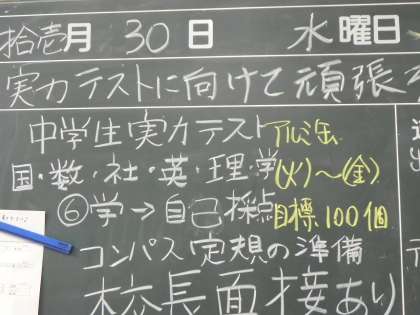 拾壱月 30日 水曜日
実力テストに向けて頑張
中学生実力テスト
国・数・社・英・理・学
⑥学→自己採点
コンパス定規の準備
校長面接あり
アルミ缶
(火)～(金)
目標100個